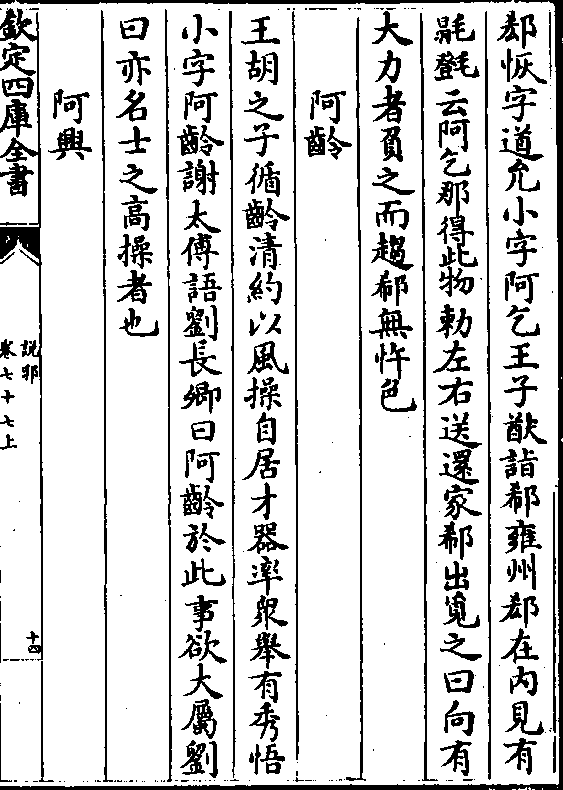 郄恢字道允小字阿乞王子猷詣郄雍州郄在内見有
㲪㲪云阿乞那得此物勅左右送還家郄出覓之曰向有
大力者負之而趨郄無忤色
阿齡
王胡之子循齡清約以風操自居才器率衆舉有秀悟
小字阿齡謝太傅語劉長卿曰阿齡於此事欲大厲劉
曰亦名士之高操者也
阿興
欽定四庫全書
說郛
卷七十七上
十四